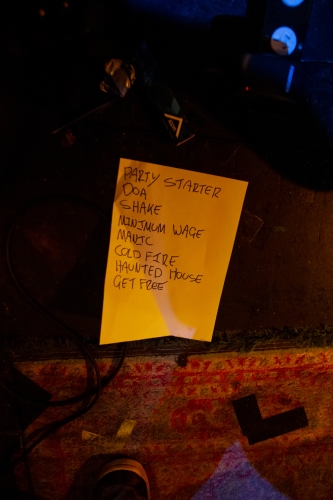 PARTY STARTER
DOA
SHAKE
MINIMUM WAGE
MANIC
COLD FIRE
HAUNTED HOUSE
GET FREE